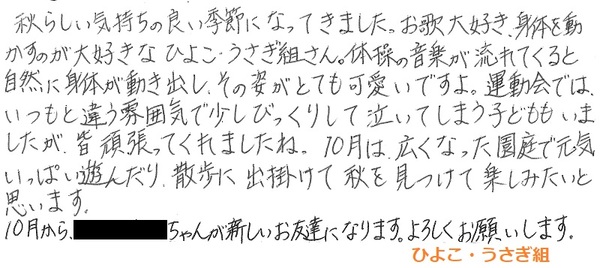 秋らしい気持ちの良い季節になってきました。お歌大好き、身体を動
かすのが大好きな ひよこ・うさぎ組さん。体操の音楽が流れてくると
自然に身体が動き出し、その姿がとても可愛いですよ。運動会では、
いつもと違う雰囲気で少しびっくりして泣いてしまう子どももいま
したが、皆頑張ってくれましたね。10月は、広くなった園庭で元気
いっぱい遊んだり、散歩に出掛けて秋を見つけて楽しみたいと
思います。
10月から、ちゃんが新しいお友達になります。よろしくお願いします。
ひよこ・うさぎ組